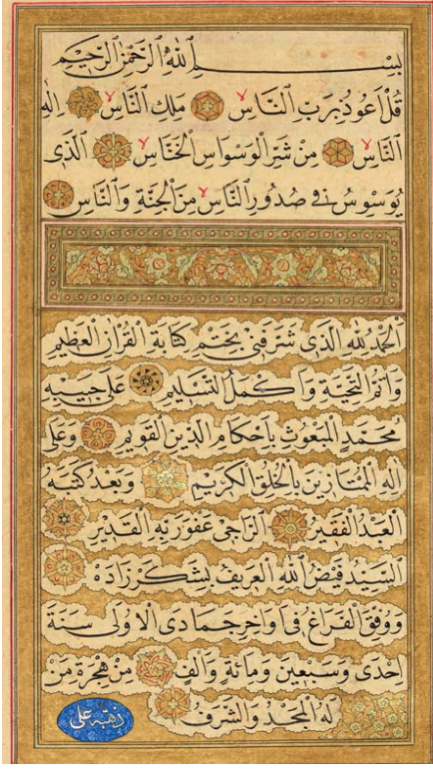 بِسْمِ ٱللَّهِ ٱلرَّحْمٰنِ ٱلرَّحِيمِ
قُلْ اَعُوذُ بِرَبِّ النَّاسِ مَلِكِ النَّاسِ اِلٰهِ
النَّاسِ مِنْ شَرِّ الْوَسْوَاسِ الْخَنَّاسِ الَّذِى
يُوَسْوِسُ فِى صُدُورِ النَّاسِ مِنَ الْجِنَّةِ وَالنَّاسِ
اَلْحَمْدُ لِلّٰهِ الَّذِى شَرَّفَنِى بِخَتْمِ كِتَابَةِ الْقُرْاٰنِ الْعَظِيمِ
وَاَتَمُّ التَّحِيَّةِ وَاَكْمَلُ التَّسْلِيمِ عَلٰى حَبِيبِهِ
مُحَمَّدٍ الْمَبْعُوثِ بِاَحْكَامِ الدِّينِ الْقَوِيمِ وَعَلٰى
اٰلِهِ الْمُمْتَازِينَ بِالْخُلُقِ الْكَرِيمِ وَبَعْدُ كَتَبَهُ
الْعَبْدُ الْفَقِيرُ الرَّاجِى عَفْوَ رَبِّهِ الْقَدِيرِ
السَّيِّدُ فَيْضُ اللّٰهِ الْعَرِيفُ بِشَكَرْزَادَهْ
وَوُفِّقَ الْفَرَاغُ فِى اَوَاخِرِ جَمَادَى الْاُولٰى سَنَةَ
اِحْدٰى وَسَبْعِينَ وَمِائَةٍ وَاَلْفٍ مِنْ هِجْرَةِ مَنْ
لَهُ الْمَجْدُ وَالشَّرَفُ
ذهبه على